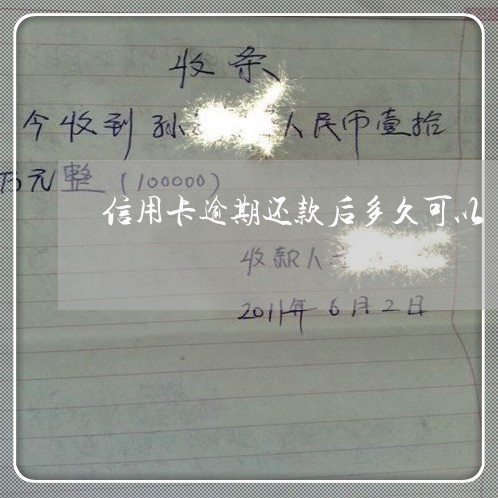 收条
今收到孙 人民币壹拾
万元整（100000）
信用卡逾期还款后多久可以
收款人
2011年6月2日